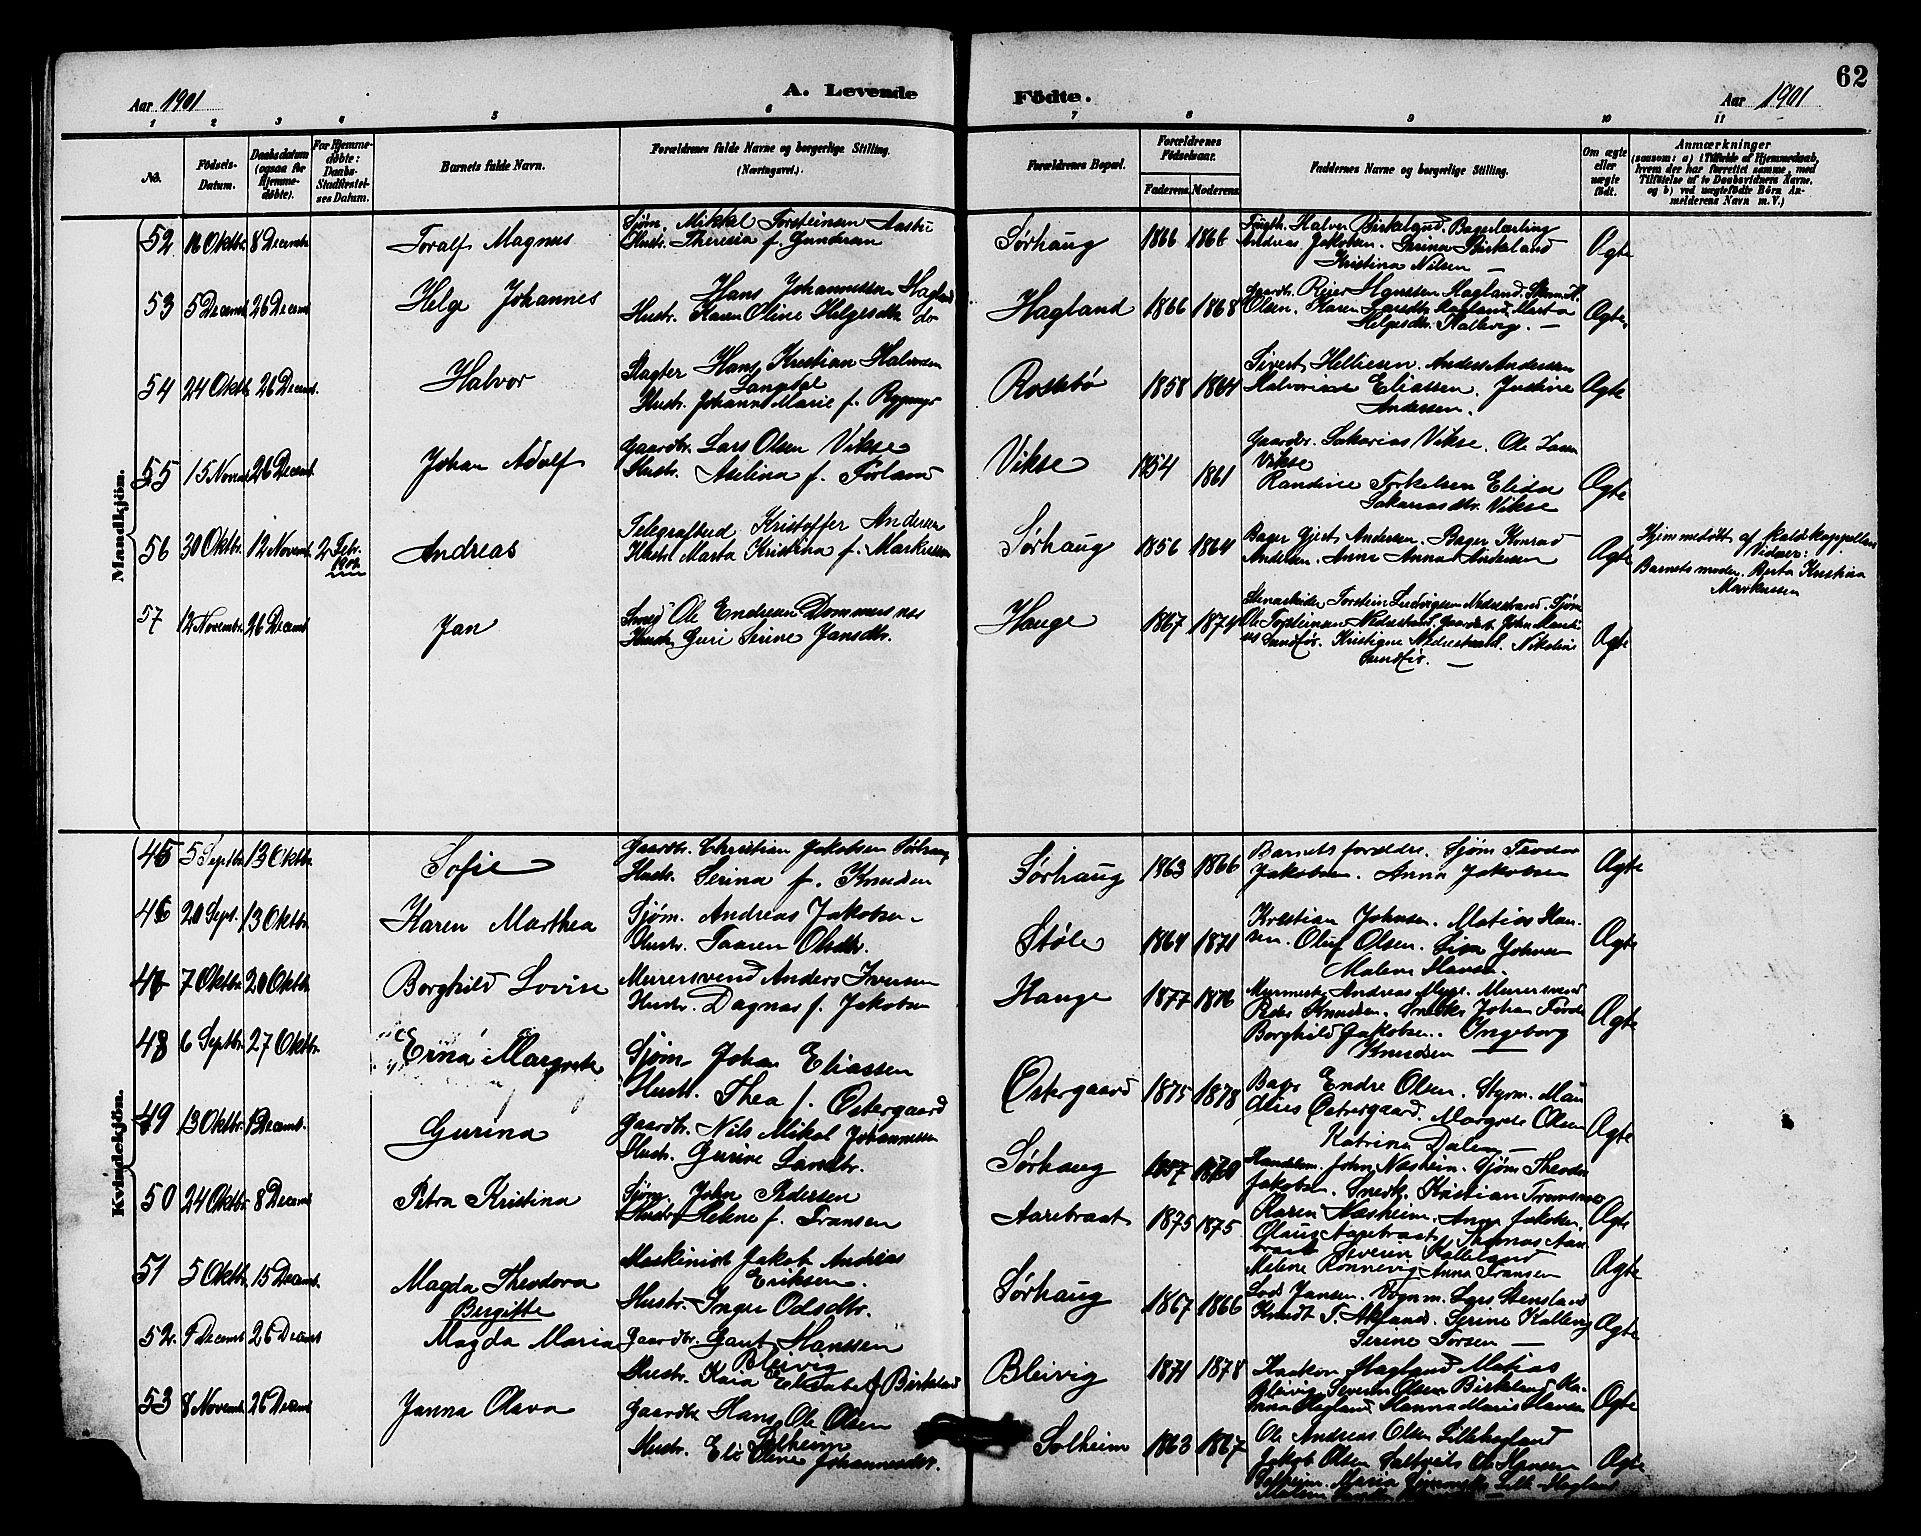 62
Aar 1901
A. Levende
Fødte.
Aar 1901
1 2 3 4 5 6 7 8 9 10 11
No.
Fødsels-Datum.
Daabsdatum (ogsaa for Hjemme-døbte).
For Hjemme-døbte: Daabs-Stadfæstel-ses Datum.
Barnets fulde Navn.
Forældrenes fulde Navne og borgerlige Stilling. (Næringsvei.)
Forældrenes Bopæl.
Forældrenes Fødselsaar.
Faderens. Moderens.
Faddernes Navne og borgerlige Stilling.
Om ægte eller uægte født.
Anmærkninger
(saasom: a) i Tilfælde af Hjemmedaab,
hvem der har forrettet samme, med
Tilføielse af to Daabsvidners Navne,
og b) ved uægtefødte Børn An-
melderens Navn m. V.)
Mandkjøn.
52 16 Oktbr 8 Decemb Toralf Magnus
Sjøm. Mikkel Torsteinsen
Hustr. Theresia f. Gundersen
Sørhaug 1866 1866
Halvor Birkeland. Bagerlærling
Andreas Jakobsen. Serina Birkeland
Kristina Nilsen —
Ægte
53 5 Decemb 26 Decemb Helge Johannes
Hans Johannessen Hagland
Hustr. Karen Oline Helgesdtr. do
Hagland 1866 1868
Gaardbr. Reier Hanssen Hagland.
Olsen. Karen Larsdtr Hagland, Marta
Helgesdtr. Kallevig. —
Ægte
54 24 Oktb 26 Decemb. Halvor
Slagter Hans Kristian Halvorsen
Langdal
Hustr. Johanne Marie f.
Rossebø 1858 1864
Sivert Helliesen. Anders Andersen
Halvorine Eliassen. Justine
Andersen.
Ægte
55 15 Novem 26 Decemb. Johan Adolf
Gaardbr. Lars Olsen Vikse
Hustr. Aselina f. Førland
Vikse 1854 1861
Gaardbr. Sakarias Vikse. Ole Larsen
Vikse
Randine Torkelsen Elida
Sakariasdtr. Vikse
Ægte
56 30 Oktbr. 12 Novemb. 2 Febr. 1902 Andreas
Telegrafbud Kristoffer Andersen
Hustr. Marta Kristina f. Markussen
Sørhaug 1856 1864
Bager Gjert Andersen. Bager Konrad
Andersen. Anne Anna Andersen
Ægte
Hjemmedøbt af
Vidner:
Barnets moder. Berta Kristina
Markussen
57 12 Novembr. 26 Decemb Jan
Smed Ole Endresen Dommersnes
Hustr. Guri Serine Jansdtr.
Hauge 1867 1874
Stenarbeider Torstein Ludvigsen Nedrestrand. Sjøm
Ole Torsteinsen Nedrestrand. Gaardbr. John Marti
us Sundfør. Kristigne Nedrestrand. Nikoline
Sundfør. —
Ægte
Kvindekjøn.
45 5 Septbr 13 Oktbr. Sofie
Gaardbr. Christian Jakobsen Sørhaug
Hustr. Serina f. Knudsen
Sørhaug 1863 1866
Barnets forældre. Sjøm Teodor
Jakobsen. Anna Jakobsen
Ægte
46 20 Sept. 13 Oktbr. Karen Marthea
Sjøm. Andreas Jakobsen
Hustr. Taaren Olsdtr.
Støle 1864 1871
Kristian Johnsen. Matias Han-
sen. Oluf Olsen. Johnsen
Malene Hansen.
Ægte
47 7 Oktbr 20 Oktb Borghild Lovise
Murersvend Anders Iversen
Hustr. Dagnas f. Jakobsen
Hauge 1877 1876
Murmester Andreas Murersvend
Peder Knudsen. Johan Førde
Borghild Jakobsen. Ingeborg
Knudsen —
Ægte
48 6 Septbr. 27 Oktbr. Erna Margrete
Sjøm. Johan Eliassen
Hustr. Thea f. Østergaard
Østergaard 1875 1878
Bager Endre Olsen. Styrm. Mau
ritius Østergaard. Margrete Olsen
Katrine Dalen —
Ægte
49 13 Oktbr. 1 Decemb. Gurina
Gaardbr. Nils Mikal Johannessen
Hustr. Gurine Larsdtr.
Sørhaug 1857 1860
Handelsm. John Næsheim. Sjøm Theodor
Jakobsen. Snedk. Kristian
Karen Næsheim. Anna Jakobsen
Ægte
50 24 Oktbr. 8 Decemb Petra Kristina
Sjøm. John Pedersen
Hustr. Helene f. Fransen
Aarebraat 1875 1875
Olaus Aarebraat. Thomas Aare
braat Severin Kalleland
Malene Rønnevig Anna Fransen
Ægte
51 5 Oktbr. 15 Decemb. Magda Theodora
Bergitte
Maskinist Jakob Andreas
Eriksen.
Hustr. Inger Odsdtr.
Sørhaug 1867 1866
Lods Jansen. Lars Stensland
Knudt T. Serine Kallevig
Serine Torsen —
Ægte
52. 9 Decemb 26 Decemb Magda Maria
Gaardbr. Gaut Hanssen
Bleivig
Hustr. Kaia Elisabet f Birkeland
Bleivig 1871 1878
Haakon Hagland Matias
Bleivig Severin Olsen Birkeland
Hagland Hanna Maria Hansen
Ægte
53 8 Novemb 26 Decemb Janna Olava
Gaardbr. Hans Ole Olsen
Solheim
Hustr. Eli Oline Johannesdtr.
Solheim 1863 1867
Ole Andreas Olsen Lillehagland
Jakob Olsen Ole Hansen
Solheim. Maria Lille Hagland
Ægte